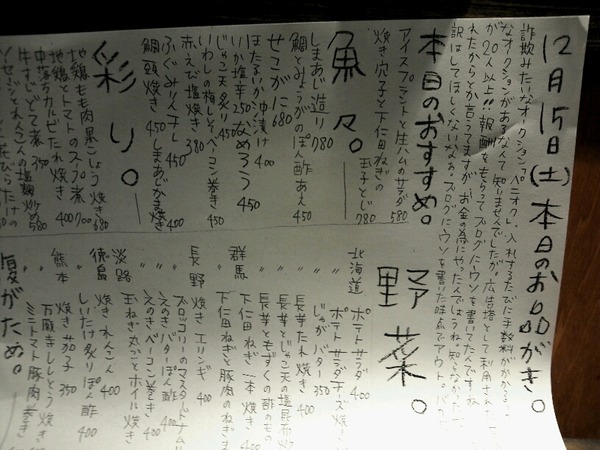 12月15日(土)本日のお品がき。
詐欺みたいなオークションってペニオク。入札するたびに手数料がかかる
なオークションがあるなんて知りませんでしたが、広告塔として利用された
が20人以上!!報酬をもらってブログにウソを書いてた
れたからとか言ってますが、お金の為にやったんでは
訳はしてほしくないなぁ。ブログにウソを書いた時点でアウト。
本日のおすすめ。
アイスプラントと生ハムのサラダ 580
焼き穴子と下仁田ねぎの
玉子とじ 780
魚々。
しまあじ造り 780
鯛とみょうがのぽん酢あえ 450
せこがに 680
ほたるいか沖漬け 400
いか塩辛 250 なめろう 450
じゃこ天炙り 450
いわしの梅しそベーコン巻き 450
赤えび塩焼き 380
ふぐみりん干し 450
鯛頭焼き 450 しまあじかま焼き 400
彩り。
地鶏もも肉黒こしょう焼き 680
地鶏とトマトのスープ煮 700
中落ちカルビたれ焼き 400
牛すじどて煮 350
ソーセージとれんこんの塩麹炒め 580
野菜。
北海道 ポテトサラダ 400
〃 ポテトサラダチーズ焼き
〃 じゃがバター 350
〃 長芋たれ焼き 400
〃 長芋とじゃこ天の塩昆布炒め
〃 長芋ともずくの酢のもの
群馬 下仁田ねぎ一本焼き 400
〃 下仁田ねぎと豚肉のねぎま
長野 焼きエリンギ 400
〃 ブロッコリーのマスタードナムル
〃 えのきバターぽん酢 400
〃 えのきベーコン巻き 400
淡路 玉ねぎ丸ごとホイル焼き
徳島 焼きれんこん 400
〃 しいたけ炙りぽん酢 400
熊本 焼き茄子 350
〃 万願寺ししとう焼き 400
ミニトマト豚肉巻き
腹がため。